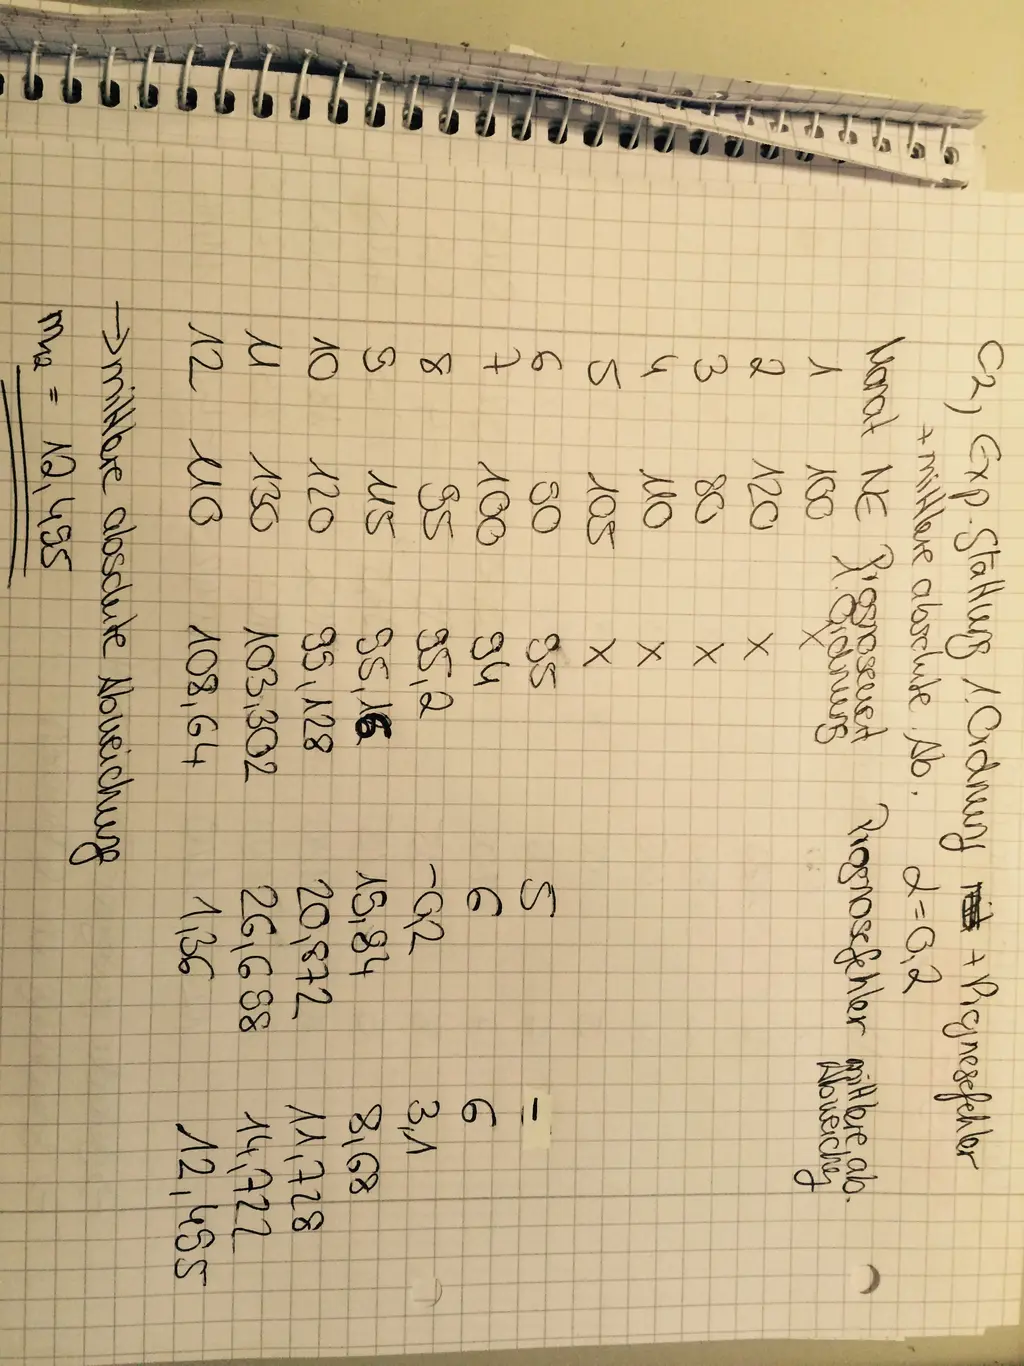 C2) Exp. Glattung 1. Ordnung + Prognosefehler
+ mittlere absolute Ab. α = 0,2
Monat NE Prognosewert 1. Ordnung Prognosefehler mittlere ab. Abweichg
1 100 x
2 120 x
3 80 x
4 110 x
5 105 x
6 90 95 5 -
7 100 94 6 6
8 95 95,2 -0,2 3,1
9 115 95,16 19,84 8,68
10 120 99,128 20,872 11,728
11 130 103,302 26,698 14,722
12 110 108,64 1,36 12,495
→ mittlere absolute Abweichung
m12 = 12,495